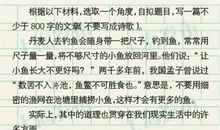 根据以下材料,选取一个角度,自拟题目,写一篇不
少于800字的文章(不要写成诗歌)。
丹麦人去钓鱼会随身带一把尺子,钓到鱼,常常用
尺子量一量,将不够尺寸的小鱼放回河里。他们说:“让
小鱼长大不更好吗?”两千多年前,我国孟子曾说过
“数罟不入洿池,鱼鳖不可胜食也。”意思是,不要用细
密的渔网在池塘里捕捞小鱼,这样才会有更多的鱼。
实际上,其中的道理也贯穿在我们现实生活中的许
多方面